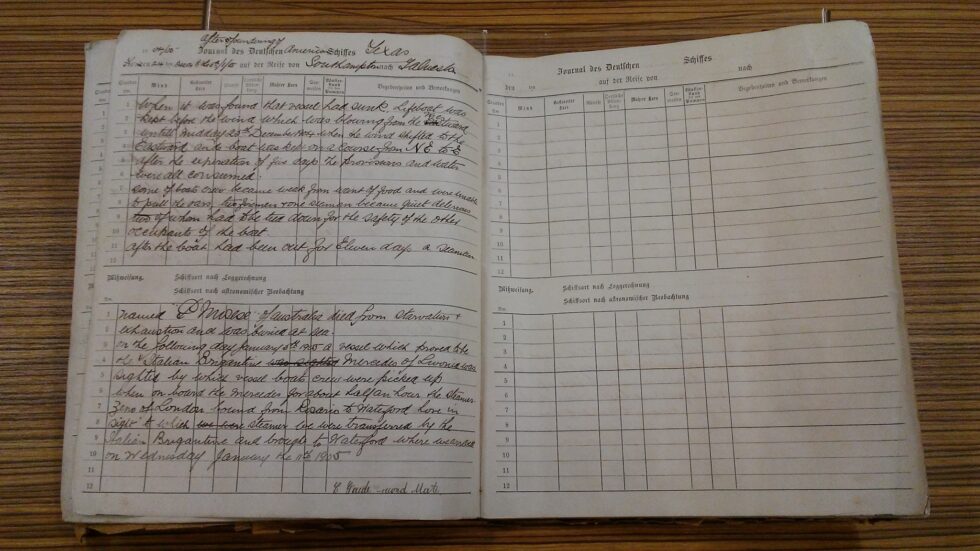 After foundering of
Journal des Deutschen American Schiffes Texas
auf der Reise von Southampton nach Galveston
Wind Gesteuerter Kurs Abtrift Wahrer Kurs Begebenheiten und Bemerkungen
1 When it was found that vessel had sunk. Lifeboat was
2 kept before the wind which was blowing from the
3 until midday 28th December when the wind shifted to the
4 Eastward and boat was kept on a course from N.E. to E
5 after the expiration of five days the provisions and water
6 were all consumed.
7 some of boats crew became weak from want of food and were unable
8 to pull the oars, two firemen & one seaman became quiet delerious
9 two of whom had to be tied down for the safety of the other
10 occupants of the boat
11 after the boat had been out for Eleven days a Seaman
12
Mißweisung. Schiffsort nach Loggerechnung
Schiffsort nach astronomischer Beobachtung
1 named of Australia died from Starvation &
2 exhaustion and was buried at sea.
3 on the following day January 5th 1905 a vessel which proved to be
4 the Italian Brigantine was sighted Mercedes of Livonia was
5 sighted by which vessel boats crew were picked up
6 when on board the Mercedes for about half an hour the steamer
7 Zeno of London bound from Rosario to Waterford hove in
8 sight to which we were steamer we were transferred by the
9 Italian Brigantine and brought to Waterford where we arrived
10 on Wednesday January the 11th 1905
11
12 Mate
Journal des Deutschen Schiffes
den 19 auf der Reise von nach
Wind Gesteuerter Kurs Abtrift Wahrer Kurs Begebenheiten und Bemerkungen
1
2
3
4
5
6
7
8
9
10
11
12
Mißweisung. Schiffsort nach Loggerechnung
Schiffsort nach astronomischer Beobachtung
1
2
3
4
5
6
7
8
9
10
11
12